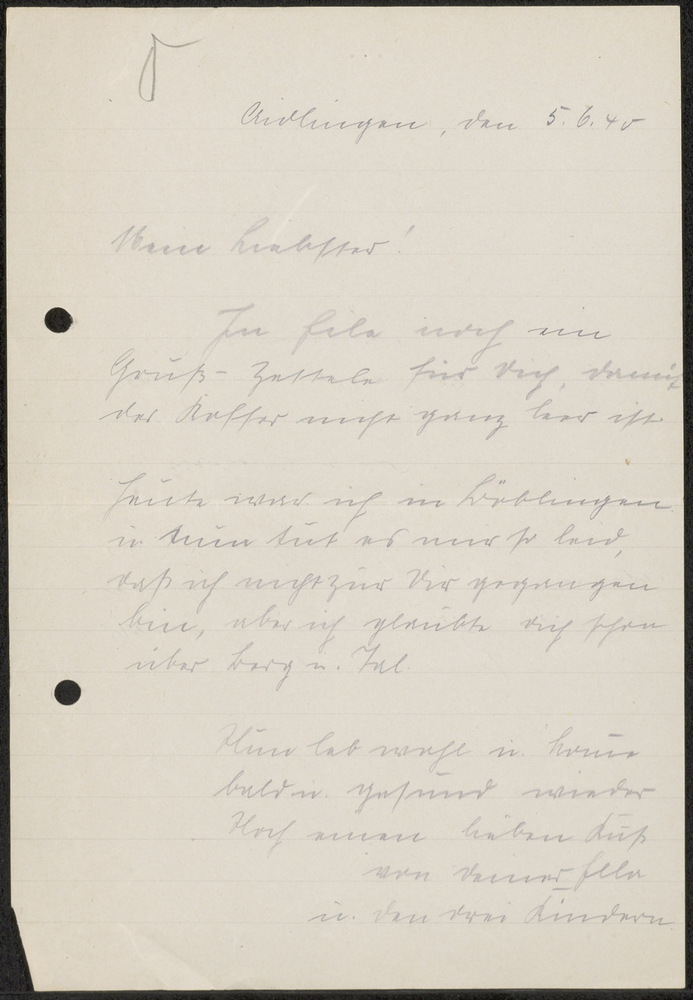 Aidlingen, den 5.6.40
Mein Liebster!
In Eile noch ein
Gruß-Zettele für Dich, damit
der Koffer nicht ganz leer ist
Heute war ich in Böblingen
u. nun tut es mir so leid,
daß ich nicht zur Dir gegangen
bin, aber ich glaubte dich schon
über Berg u. Tal.
Nun leb wohl u. komme
bald u. gesund wieder
Noch einen lieben Kuß
von deiner Ella
u. den drei Kindern